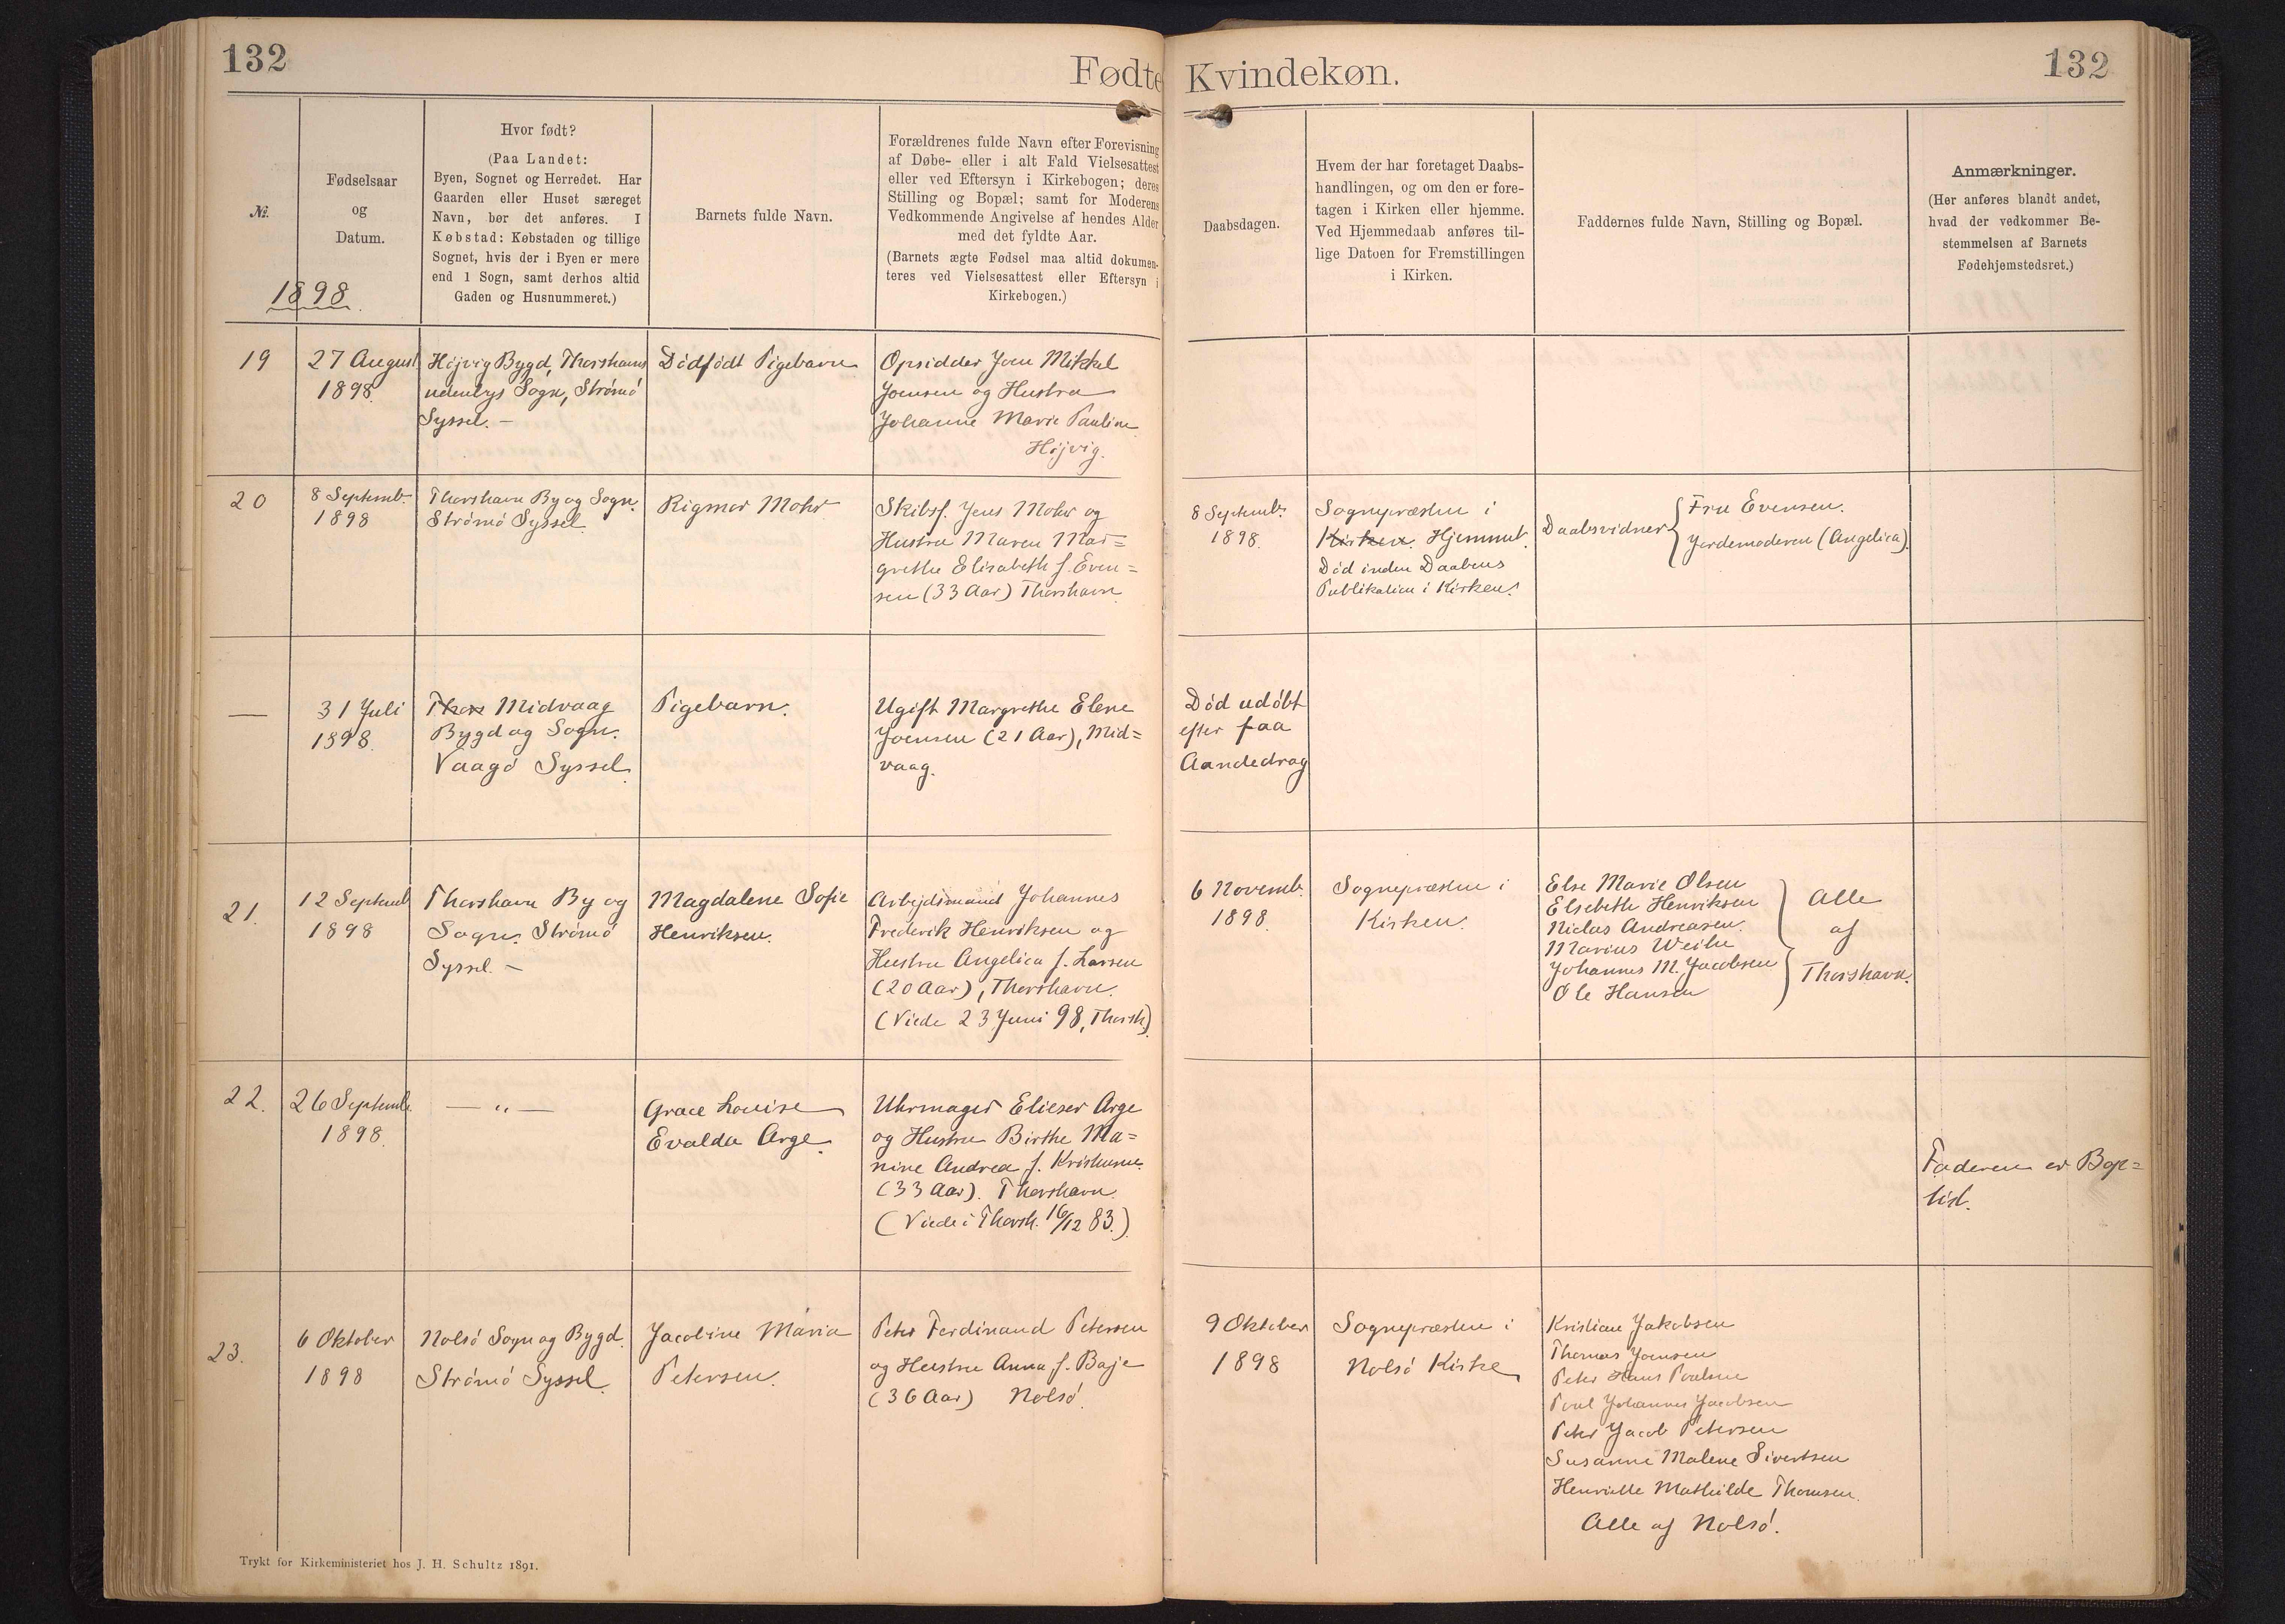 132
Fødte
Kvindekøn.
132
№
1898
Fødselsaar
og
Datum.
Hvor født?
(Paa Landet:
Byen, Sognet og Herredet. Har
Gaarden eller Huset særeget
Navn, bør det anføres. I
Købstad: Købstaden og tillige
Sognet, hvis der i Byen er mere
end 1 Sogn, samt derhos altid
Gaden og Husnummeret.)
Barnets fulde Navn.
Forældrenes fulde Navn efter Forevisning
af Døbe- eller i alt Fald Vielsesattest
eller ved Eftersyn i Kirkebogen; deres
Stilling og Bopæl; samt for Moderens
Vedkommende Angivelse af hendes Alder
med det fyldte Aar.
(Barnets ægte Fødsel maa altid dokumen-
teres ved Vielsesattest eller Eftersyn i
Kirkebogen.)
Daabsdagen.
Hvem der har foretaget Daabs-
handlingen, og om den er fore-
tagen i Kirken eller hjemme.
Ved Hjemmedaab anføres til-
lige Datoen for Fremstillingen
i Kirken.
Faddernes fulde Navn, Stilling og Bopæl.
Anmærkninger.
(Her anføres blandt andet,
hvad der vedkommer Be-
stemmelsen af Barnets
Fødehjemstedsret.)
19
27 August
1898.
Højvig Bygd, Thorshavns
udenbys Sogn, Strømø
Syssel. —
Dødfødt Pigebarn
Opsidder Joen Mikkel
Joensen og Hustru
Johanne Marie Pauline
Højvig.
20
8 Septemb.
1898
Thorshavn By og Sogn.
Strømø Syssel
Rigmor Mohr
Skibsf. Jens Mohr og
Hustru Maren Mar=
grethe Elisabeth f. Even=
sen (33 Aar) Thorshavn
8 Septemb.
1898.
Sognepræsten i
Kirken. Hjemmet.
Død inden Daabens
Publikation i Kirken.
Daabsvidner
Fru Evensen.
Jordemoderen (Angelica).
—
31 Juli
1898.
Thor Midvaag
Bygd og Sogn.
Vaagø Syssel
Pigebarn.
Ugift Margrethe Elene
Joensen (21 Aar), Mid=
vaag.
Død udøbt
efter faa
Aandedrag
21.
12 Septemb
1898
Thorshavn By og
Sogn. Strømø
Syssel. —
Magdalene Sofie
Henriksen.
Arbejdsmand Johannes
Frederik Henriksen og
Hustru Angelica f. Larsen
(20 Aar), Thorshavn.
(Viede 23 Juni 98, Thorsh)
6 Novemb.
1898.
Sognepræsten i
Kirken.
Else Marie Olsen
Elsebeth Henriksen
Niclas Andreasen.
Marius Weihe
Johannes M. Jacobsen
Ole Hansen
Alle
af
Thorshavn.
22.
26 Septemb.
1898.
— „ —
Grace Louise
Evalda Arge.
Uhrmager Elieser Arge
og Hustru Birthe Ma=
nine Andrea f.
(33 Aar). Thorshavn.
(Viede i Thorsh. 16/12 83.)
Faderen er Bap=
tist.
23.
6 Oktober
1898
Nolsø Sogn og Bygd.
Strømø Syssel.
Jacobine Maria
Petersen.
Peter Ferdinand Petersen
og Hustru Anna f. Baje
(36 Aar) Nolsø.
9 Oktober
1898
Sognepræsten i
Nolsø Kirke
Kristian Jakobsen
Thomas Joensen
Peter Hans Poulsen
Poul Johannes Jacobsen
Peter Jacob Petersen
Susanne Malene Sivertsen
Henriette Mathilde Thomsen.
Alle af Nolsø.
Trykt for Kirkeministeriet hos J. H. Schultz 1891.